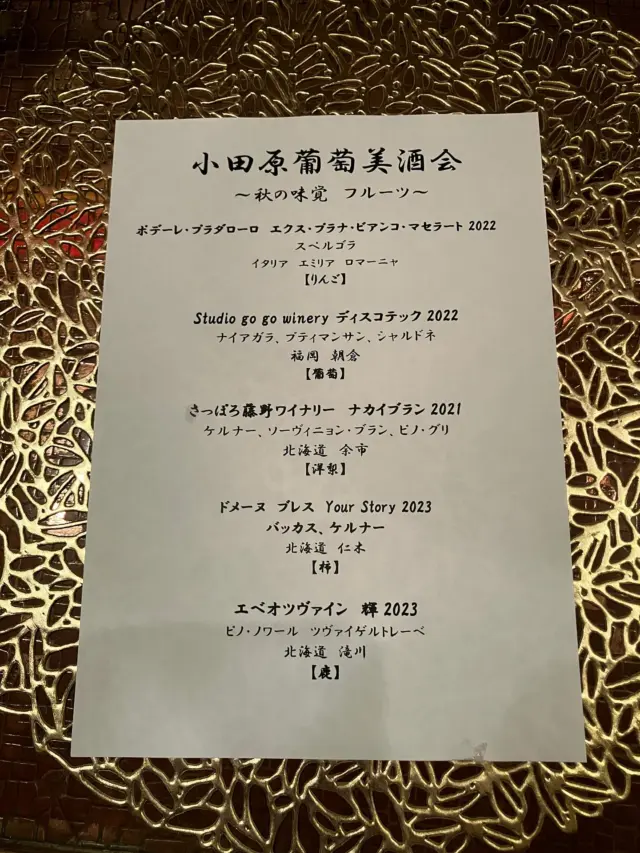 小田原葡萄美酒会
～秋の味覚　フルーツ～
ポデーレ・プラダローロ　エクス・プラナ・ビアンコ・マセラート 2022
スペルゴラ
イタリア　エミリア　ロマーニャ
【りんご】
Studio go go winery ディスコテック 2022
ナイアガラ、プティマンサン、シャルドネ
福岡　朝倉
【葡萄】
さっぽろ藤野ワイナリー　ナカイブラン 2021
ケルナー、ソーヴィニョン・ブラン、ピノ・グリ
北海道　余市
【洋梨】
ドメーヌ　ブレス　Your Story 2023
バッカス、ケルナー
北海道　仁木
【柿】
エベオツヴァイン　輝 2023
ピノ・ノワール　ツヴァイゲルトレーベ
北海道　滝川
【鹿】